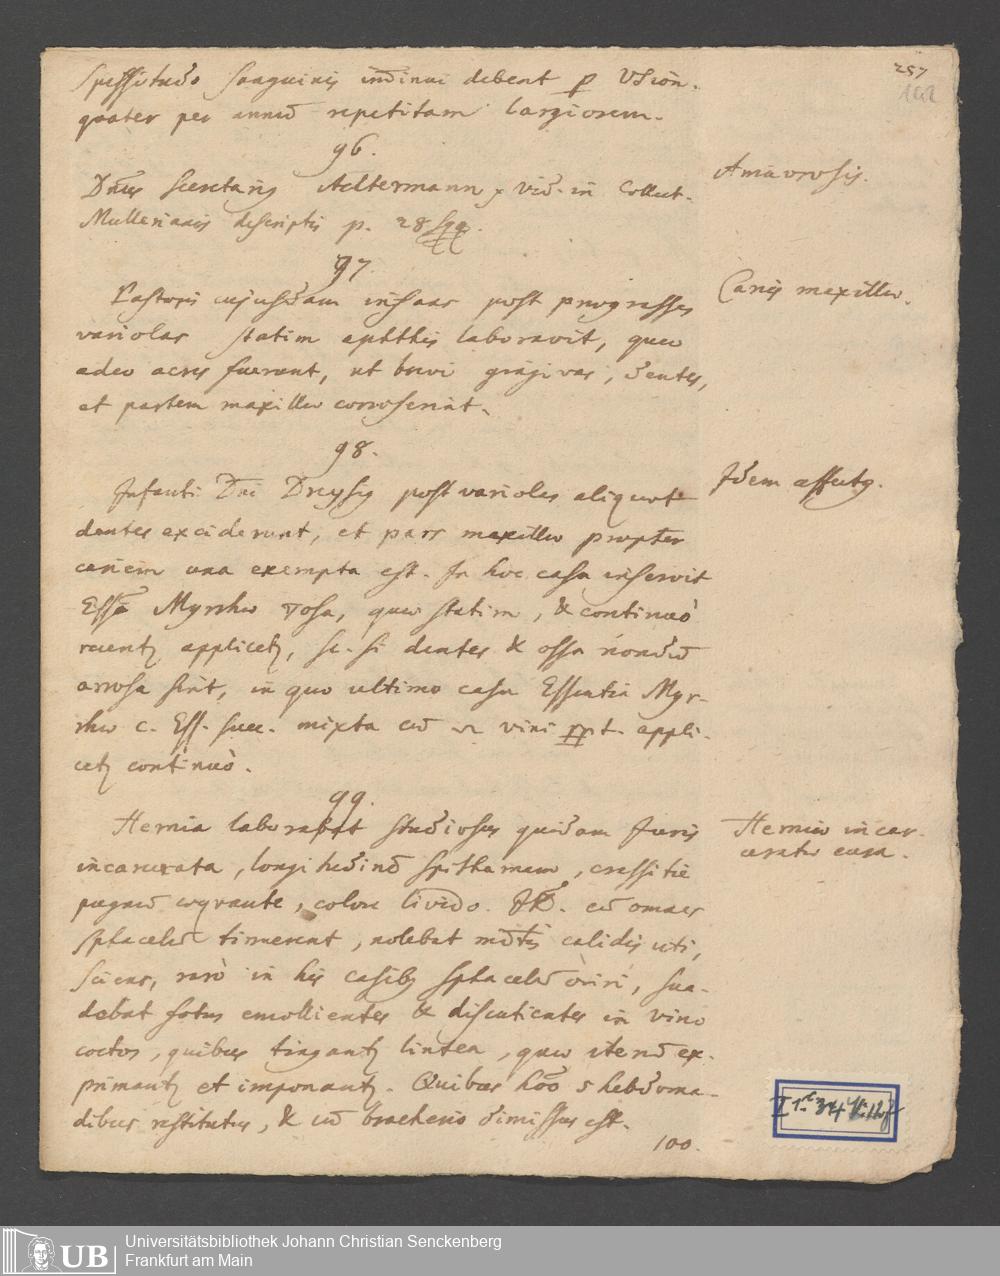 257
102
spissitudo sanguinis imminui debeat p VSion.
quater per annū repetitam largiorem.
96.
Amaurosis.
Dnus Secretarig Aeltermann, vid. in Collect.
Mullerianis descriptis p. 28 sqq.
97.
Caries maxillæ.
Pastoris cujusdam infans post progressas
variolas statim aphthis laboravit, quæ
adeo acres fuerunt, ut brevi gingivas, dentes,
et partem maxillæ corroserint.
98.
Idem affectg.
Infanti Dni Dreyssig post variolas aliquot
dentes exciderunt, et pars maxillæ propter
cariem una exempta est. In hoc casu inservit
Essā Myrrhæ osa, quæ statim, & continuò
recentz applicetz, sc. si dentes & ossa nondū
arrosa sint, in quo ultimo casu Essentia Myr-
rhæ c. Ess. succ. mixta cū vini appli-
cetz continuò.
99.
Herniæ incar-
ceratæ cura.
Hernia laborabat studiosus quidam Juris
incarcerata, longitudinē spithamam, crassitie
pugnū æquante, colore livido. cū omnes
sphacelū timerent, nolebat mdtis calidis uti,
sciens, rarò in his casibg sphacelū oriri, sua-
debat fotus emollientes & discutientes in vino
coctos, quibus tingantz lintea, quæ iterū ex-
primantz et imponantz. Quibus 5 hebdoma-
dibus restitutus, & cū bracherio dimissus est.
100.
Universitätsbibliothek Johann Christian Senckenberg
UB
Frankfurt am Main